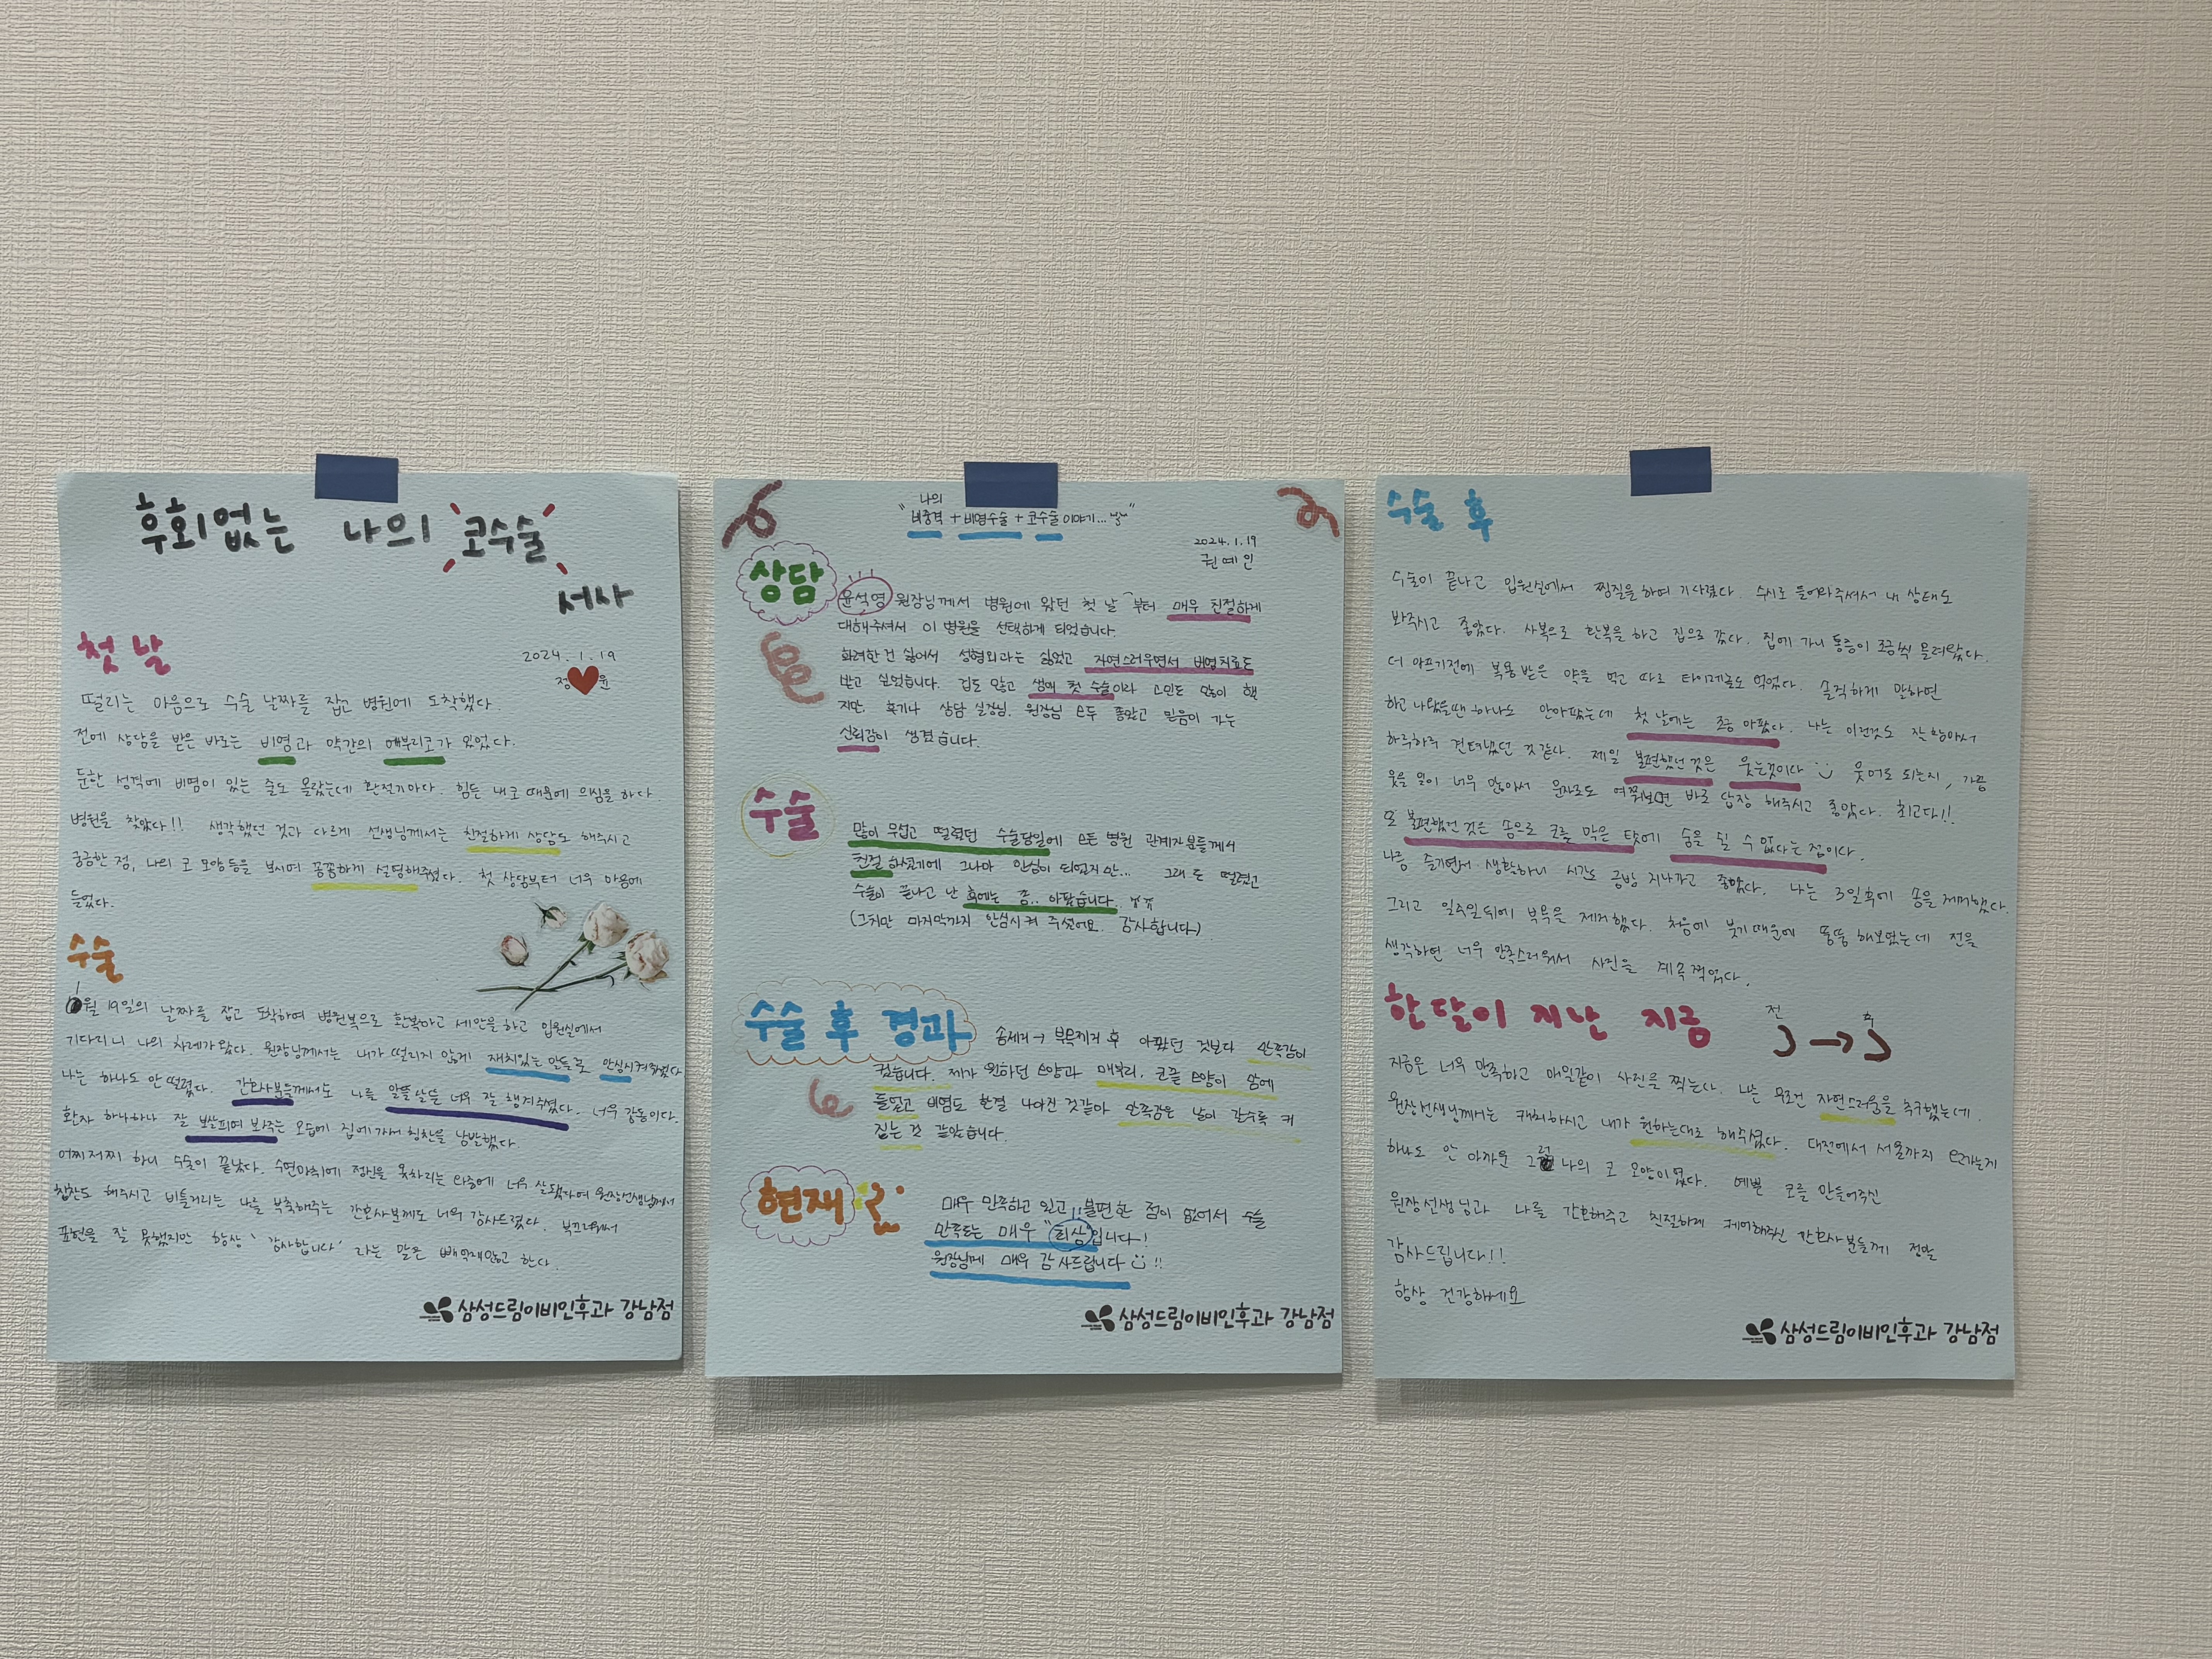 후회없는 나의 코수술
서사
첫 날
2024. 1. 19
정 윤
떨리는 마음으로 수술 날짜를 잡고 병원에 도착했다.
전에 상담을 받은 바로는 비염과 약간의 매부리코가 있었다.
둔한 성격에 비염이 있는 줄도 몰랐는데 환절기마다 힘든 내 코 때문에 의심을 하다
병원을 찾았다!! 생각했던 것과 다르게 선생님께서는 친절하게 상담도 해주시고
궁금한 점, 나의 코 모양등을 보시며 꼼꼼하게 설명해주셨다. 첫 상담부터 너무 마음에
들었다.
수술
1월 19일의 날짜를 잡고 도착하여 병원복으로 환복하고 세안을 하고 입원실에서
기다리니 나의 차례가 왔다. 원장님께서는 내가 떨리지 않게 재치있는 말들로 안심시켜주셨다
나는 하나도 안 떨렸다. 간호사분들께서도 나를 알뜰살뜰 너무 잘 챙겨주셨다. 너무 감동이다.
환자 하나하나 잘 보살피며 봐주는 모습에 집에가서 칭찬을 남발했다.
어찌저찌 하니 수술이 끝났다. 수면마취에 정신을 못차리는 와중에 너무 잘됐다며 원장선생님께서
칭찬도 해주시고 비틀거리는 나를 부축해주는 간호사분께도 너무 감사드렸다. 부끄러워서
표현을 잘 못했지만 항상 '감사합니다' 라는 말은 빼먹지않고 한다.
삼성드림이비인후과 강남점
나의
"비중격 + 비염수술 + 코수술 이야기..."
2024. 1. 19
권예인
상담
윤석영 원장님께서 병원에 왔던 첫 날 부터 매우 친절하게
대해주셔서 이 병원을 선택하게 되었습니다.
화려한 건 싫어서 성형외과는 싫었고 자연스러우면서 비염치료도
받고 싶었습니다. 겁도 많고 생애 첫 수술이라 고민도 많이 했
지만, 후기나 상담 실장님, 원장님 모두 좋았고 믿음이 가는
신뢰감이 생겼습니다.
수술
많이 무섭고 떨렸던 수술당일에 모든 병원 관계자분들께서
친절하셨기에 그나마 안심이 되었지만... 그래도 떨렸고
수술이 끝나고 난 후에는 좀.. 아팠습니다.. ㅠㅠ
(그치만 마지막까지 안심시켜 주셨어요. 감사합니다)
수술 후 경과
솜제거 → 부목제거 후 아팠던 것보다 만족감이
컸습니다. 제가 원하던 모양과 매부리, 코끝 모양이 맘에
들었고 비염도 한결 나아진 것같아 만족감은 날이 갈수록 커
지는 것 같았습니다.
현재
매우 만족하고 있고 불편한 점이 없어서 수술
만족도는 매우 "최상"입니다!
원장님께 매우 감사드립니다 !!
삼성드림이비인후과 강남점
수술 후
수술이 끝나고 입원실에서 찜질을 하며 기다렸다. 수시로 들어와주셔서 내 상태도
봐주시고 좋았다. 사복으로 환복을 하고 집으로 갔다. 집에 가니 통증이 조금씩 몰려왔다.
더 아프기전에 복용 받은 약을 먹고 따로 타이레놀도 먹었다. 솔직하게 말하면
하고 나왔을땐 하나도 안아팠는데 첫 날에는 조금 아팠다. 나는 이런것도 잘 참아서
하루하루 견뎌냈던 것 같다. 제일 불편했던 것은 웃는것이다 웃어도 되는지, 가끔
웃을 일이 너무 많아서 문자로도 여쭤보면 바로 답장 해주시고 좋았다. 최고다!!
또 불편했던 것은 솜으로 코를 막은 탓에 숨을 쉴 수 없다는 점이다.
나름 즐기면서 생활하니 시간도 금방 지나가고 좋았다. 나는 3일후에 솜을 제거했다.
그리고 일주일뒤에 부목을 제거했다. 처음에 붓기때문에 뚱뚱 해보였는데 전을
생각하면 너무 만족스러워서 사진을 계속 찍었다.
한달이 지난 지금
전 후
지금은 너무 만족하고 매일같이 사진을 찍는다. 나는 무조건 자연스러움을 추구했는데
원장선생님께서는 캐치하시고 내가 원하는대로 해주셨다. 대전에서 서울까지 오가는게
하나도 안 아까운 그런 나의 코 모양이었다. 예쁜 코를 만들어주신
원장선생님과 나를 간호해주고 친절하게 케어해주신 간호사분들께 정말
감사드립니다!!
항상 건강하세요
삼성드림이비인후과 강남점